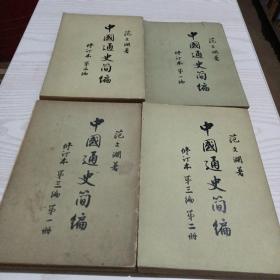 范文澜著
中國通史简编
修订本 第二编
范文澜著
中國通史简编
修订本 第一编
范文澜著
中國通史简编
修订本 第三编 第一册
范文澜著
中國通史简编
修订本 第三编 第二册